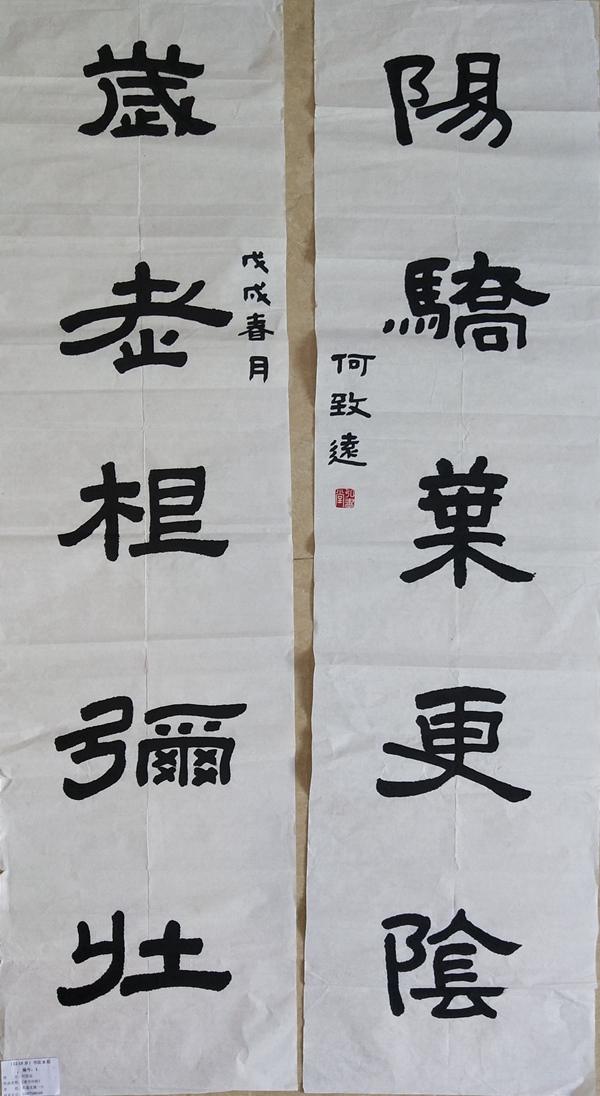 歲老根彌壯
戊戌春月
陽驕葉更陰
何致遠